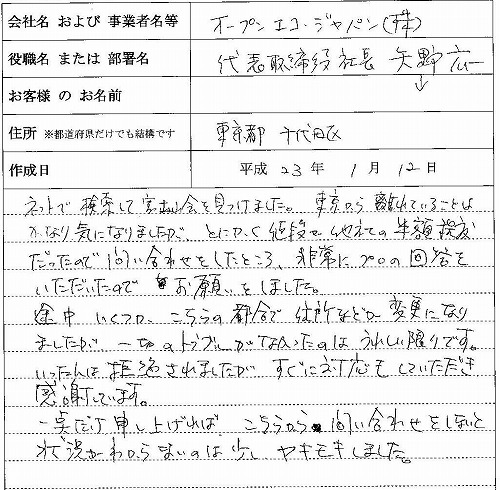 会社名 および 事業者名等 オープンエコ・ジャパン(株)
役職名 または 部署名 代表取締役社長 矢野広一
お客様 の お名前
住所 ※都道府県だけでも結構です 東京都 千代田区
作成日 平成 23 年 1 月 12 日
ネットで検索して 会を見つけました。東京から離れていることは
かなり気になりましたが、とにかく値段で他社の半額程度
だったので問い合わせをしたところ、非常にプロの回答を
いただいたので お願いをしました。
途中 いくつか、こちらの都合で住所などが変更になり
ましたが 一切のトラブルがなかったのは うれしい限りです。
いったんは拒絶されましたが すぐに対応もしていただき
感謝しています。
一点だけ申し上げれば、こちらから 問い合わせをしないと
状況がわからないのは少し ヤキモキしました。